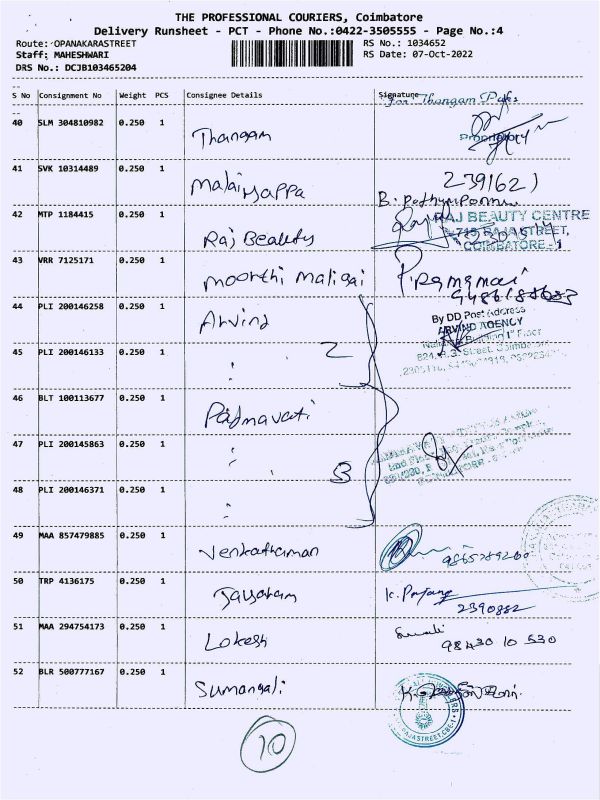 THE PROFESSIONAL COURIERS, Coimbatore
Delivery Runsheet - PCT - Phone No.:0422-3505555 - Page No.:4
Route: OPANAKARASTREET RS No.: 1034652
Staff: MAHESHWARI RS Date: 07-Oct-2022
DRS No.: DCJB103465204
S No Consignment No Weight PCS Consignee Details Signature
for Thangam
40 SLM 304810982 0.250 1 Thangam
41 SVK 10314489 0.250 1 Malaiyappa 2391621
42 MTP 1184415 0.250 1 Raj Beauty RAJ BEAUTY CENTRE
715, RAJA STREET,
COIMBATORE - 1
43 VRR 7125171 0.250 1 Moorthi Maligai
44 PLI 200146258 0.250 1 Arvind By DD Post Address
ARVIND AGENCY
45 PLI 200146133 0.250 1 " 2
46 BLT 100113677 0.250 1 Padmavati
47 PLI 200145863 0.250 1 " 3
48 PLI 200146371 0.250 1 "
49 MAA 857479885 0.250 1 Venkatraman
50 TRP 4136175 0.250 1 Jayaram 2390882
51 MAA 294754173 0.250 1 Lokesh 98430 10 530
52 BLR 500777167 0.250 1 Sumangali
RAJA STREET, CBE-1
10